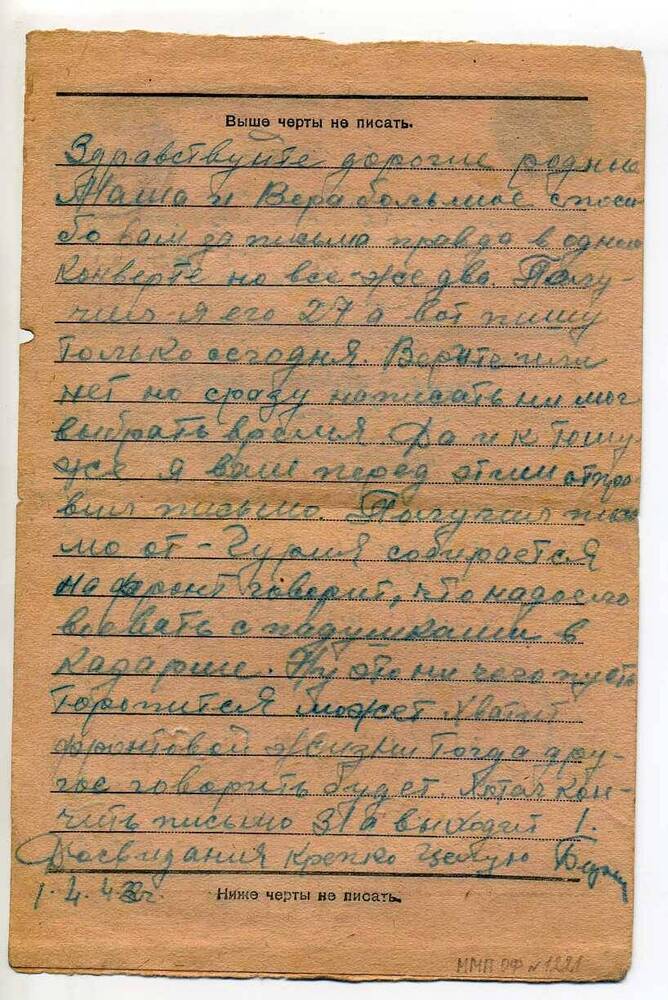 Выше черты не писать.
Здравствуйте дорогие родные
Маша и Вера большое спаси
бо вам за письма правда в одном
конверте но все-же два. Полу-
чил я его 27 а вот пишу
только сегодня. Верите или
нет но сразу написать ни мог
выбрать время. Да и к тому
же я вам перед этим отпра
вил письмо. Получил пись
мо от Гурия собирается
на фронт говорит, что надоело
воевать с подушками в
кадарме. Ну это ни чего пусть
торопится может хватит
фронтовой жизни тогда дру-
гое говорить будет. Хотел кон-
чить письмо 31 а выходит 1.
Досвидания крепко целую
1.4.43г.
Ниже черты не писать.
ММП ОФ №1221